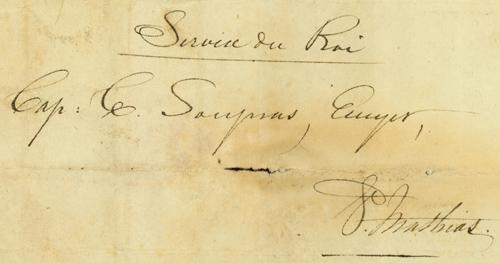 Service du Roi
Cap: E. Soupras, Ecuyer,
St. Mathias.